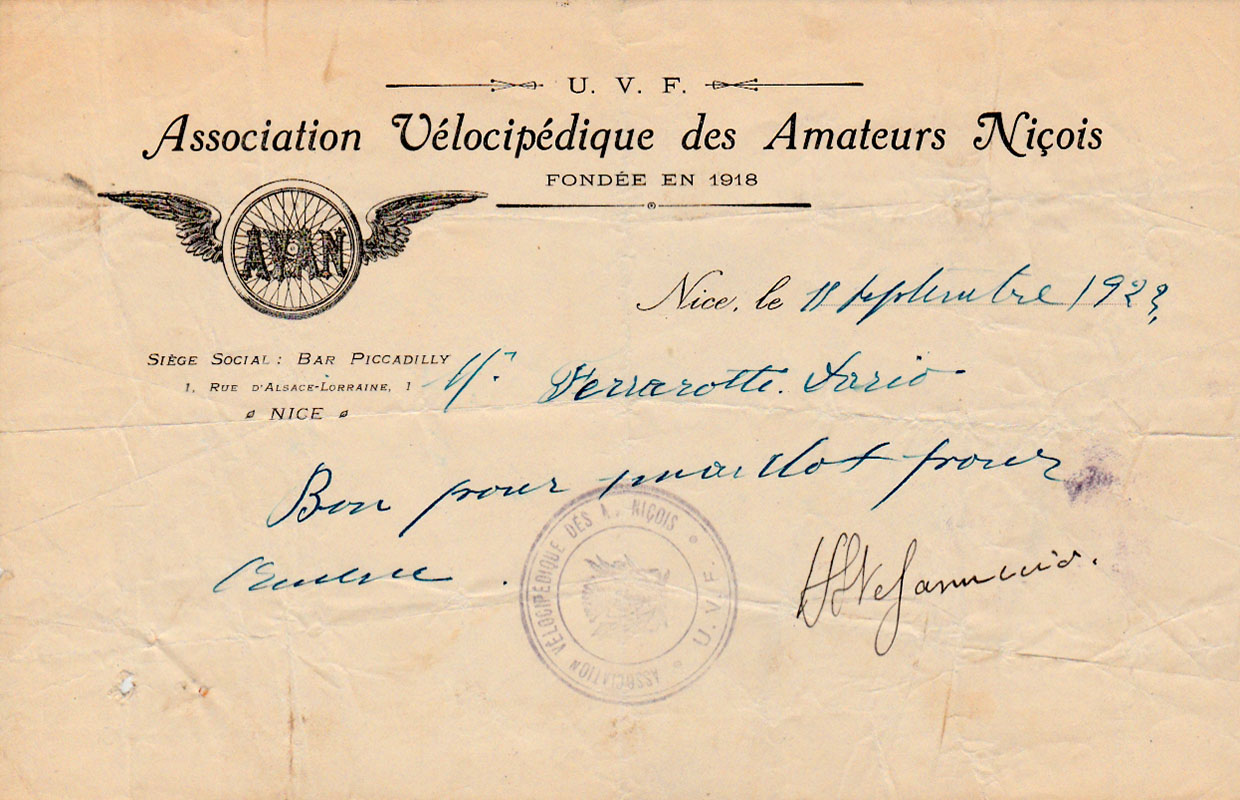 U. V. F.
Association Vélocipédique des Amateurs Niçois
FONDÉE EN 1918
AVAN
Nice, le 18 septembre 1923
SIÈGE SOCIAL : BAR PICCADILLY
1, RUE D'ALSACE-LORRAINE, 1
NICE
Mr. Ferrarotte Dario
Bon pour maillot pour
ASSOCIATION VÉLOCIPÉDIQUE DES A. NIÇOIS
U. V. F.